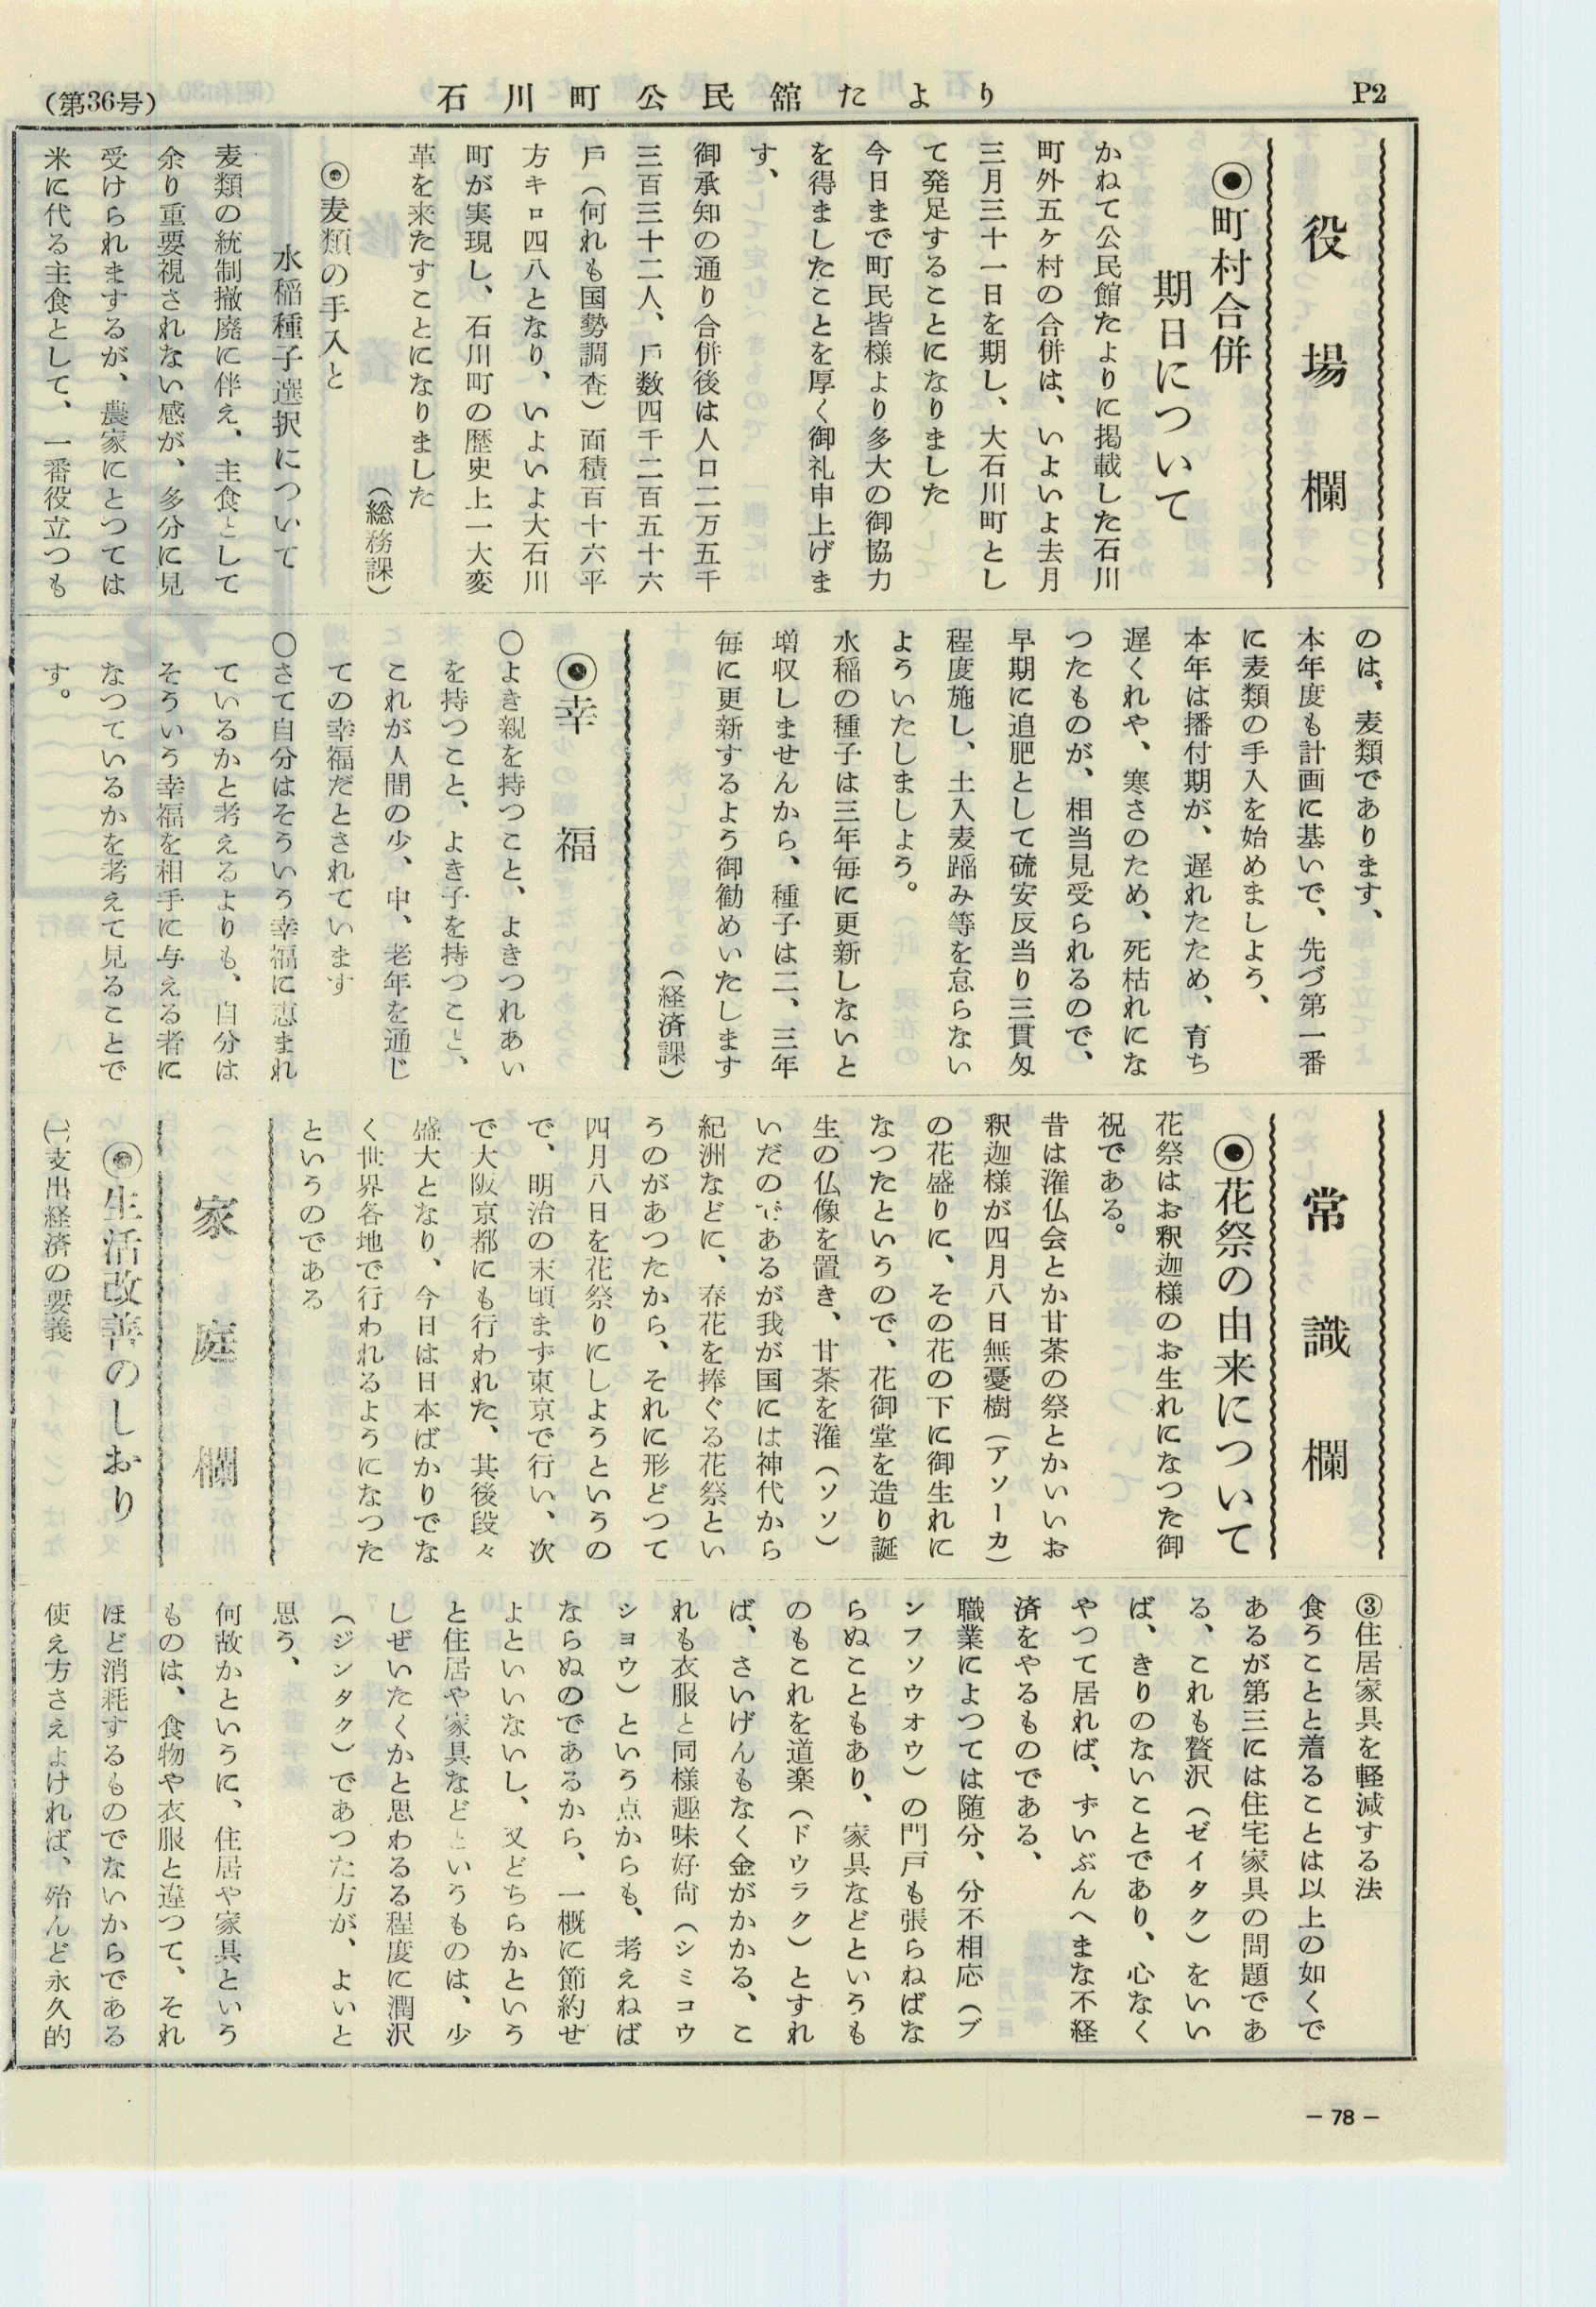 P2
石川町公民舘たより
(第36号)
役場欄
◉町村合併
期日について
かねて公民館たよりに掲載した石川
町外五ケ村の合併は、いよいよ去月
三月三十一日を期し、大石川町とし
て発足することになりました
今日まで町民皆様より多大の御協力
を得ましたことを厚く御礼申上げま
す、
御承知の通り合併後は人口二万五千
三百三十二人、戸数四千二百五十六
戸(何れも国勢調査)面積百十六平
方キロ四八となり、いよいよ大石川
町が実現し、石川町の歴史上一大変
革を来たすことになりました
(総務課)
◉麦類の手入と
水稲種子選択について
麦類の統制撤廃に伴え、主食として
余り重要視されない感が、多分に見
受けられまするが、農家にとつては
米に代る主食として、一番役立つも
のは、麦類であります、
本年度も計画に基いで、先づ第一番
に麦類の手入を始めましよう、
本年は播付期が、遅れたため、育ち
遅くれや、寒さのため、死枯れにな
つたものが、相当見受られるので、
早期に追肥として硫安反当り三貫匁
程度施し、土入麦踏み等を怠らない
よういたしましょう。
水稲の種子は三年毎に更新しないと
増収しませんから、種子は二、三年
毎に更新するよう御勧めいたします
(経済課)
◉幸福
〇よき親を持つこと、よきつれあい
を持つこと、よき子を持つこと、
これが人間の少、中、老年を通じ
ての幸福だとされています
〇さて自分はそういう幸福に恵まれ
ているかと考えるよりも、自分は
そういう幸福を相手に与える者に
なつているかを考えて見ることで
す。
常識欄
◉花祭の由来について
花祭はお釈迦様のお生れになつた御
祝である。
昔は潅仏会とか甘茶の祭とかいいお
釈迦様が四月八日無憂樹(アソーカ)
の花盛りに、その花の下に御生れに
なつたというので、花御堂を造り誕
生の仏像を置き、甘茶を潅(ソソ)
いだのであるが我が国には神代から
紀洲などに、春花を捧ぐる花祭とい
うのがあつたから、それに形どつて
四月八日を花祭りにしようというの
で、明治の末頃まず東京で行い、次
で大阪京都にも行われた、其後段々
盛大となり、今日は日本ばかりでな
く世界各地で行われるようになつた
というのである
家庭欄
◉生活改善のしおり
(一)支出経済の要義
③住居家具を軽減する法
食うことと着ることは以上の如くで
あるが第三には住宅家具の問題であ
る、これも贅沢(ゼイタク)をいい
ば、きりのないことであり、心なく
やつて居れば、ずいぶんへまな不経
済をやるものである、
職業によつては随分、分不相応(ブ
ンフソウオウ)の門戸も張らねばな
らぬこともあり、家具などというも
のもこれを道楽(ドウラク)とすれ
ば、さいげんもなく金がかかる、こ
れも衣服と同様趣味好尚(シミコウ
ショウ)という点からも、考えねば
ならぬのであるから、一概に節約せ
よといいないし、又どちらかという
と住居や家具などというものは、少
しぜいたくかと思わるる程度に潤沢
(ジンタク)であつた方が、よいと
思う、
何故かというに、住居や家具という
ものは、食物や衣服と違つて、それ
ほど消耗するものでないからである
使え方さえよければ、殆んど永久的
－78－